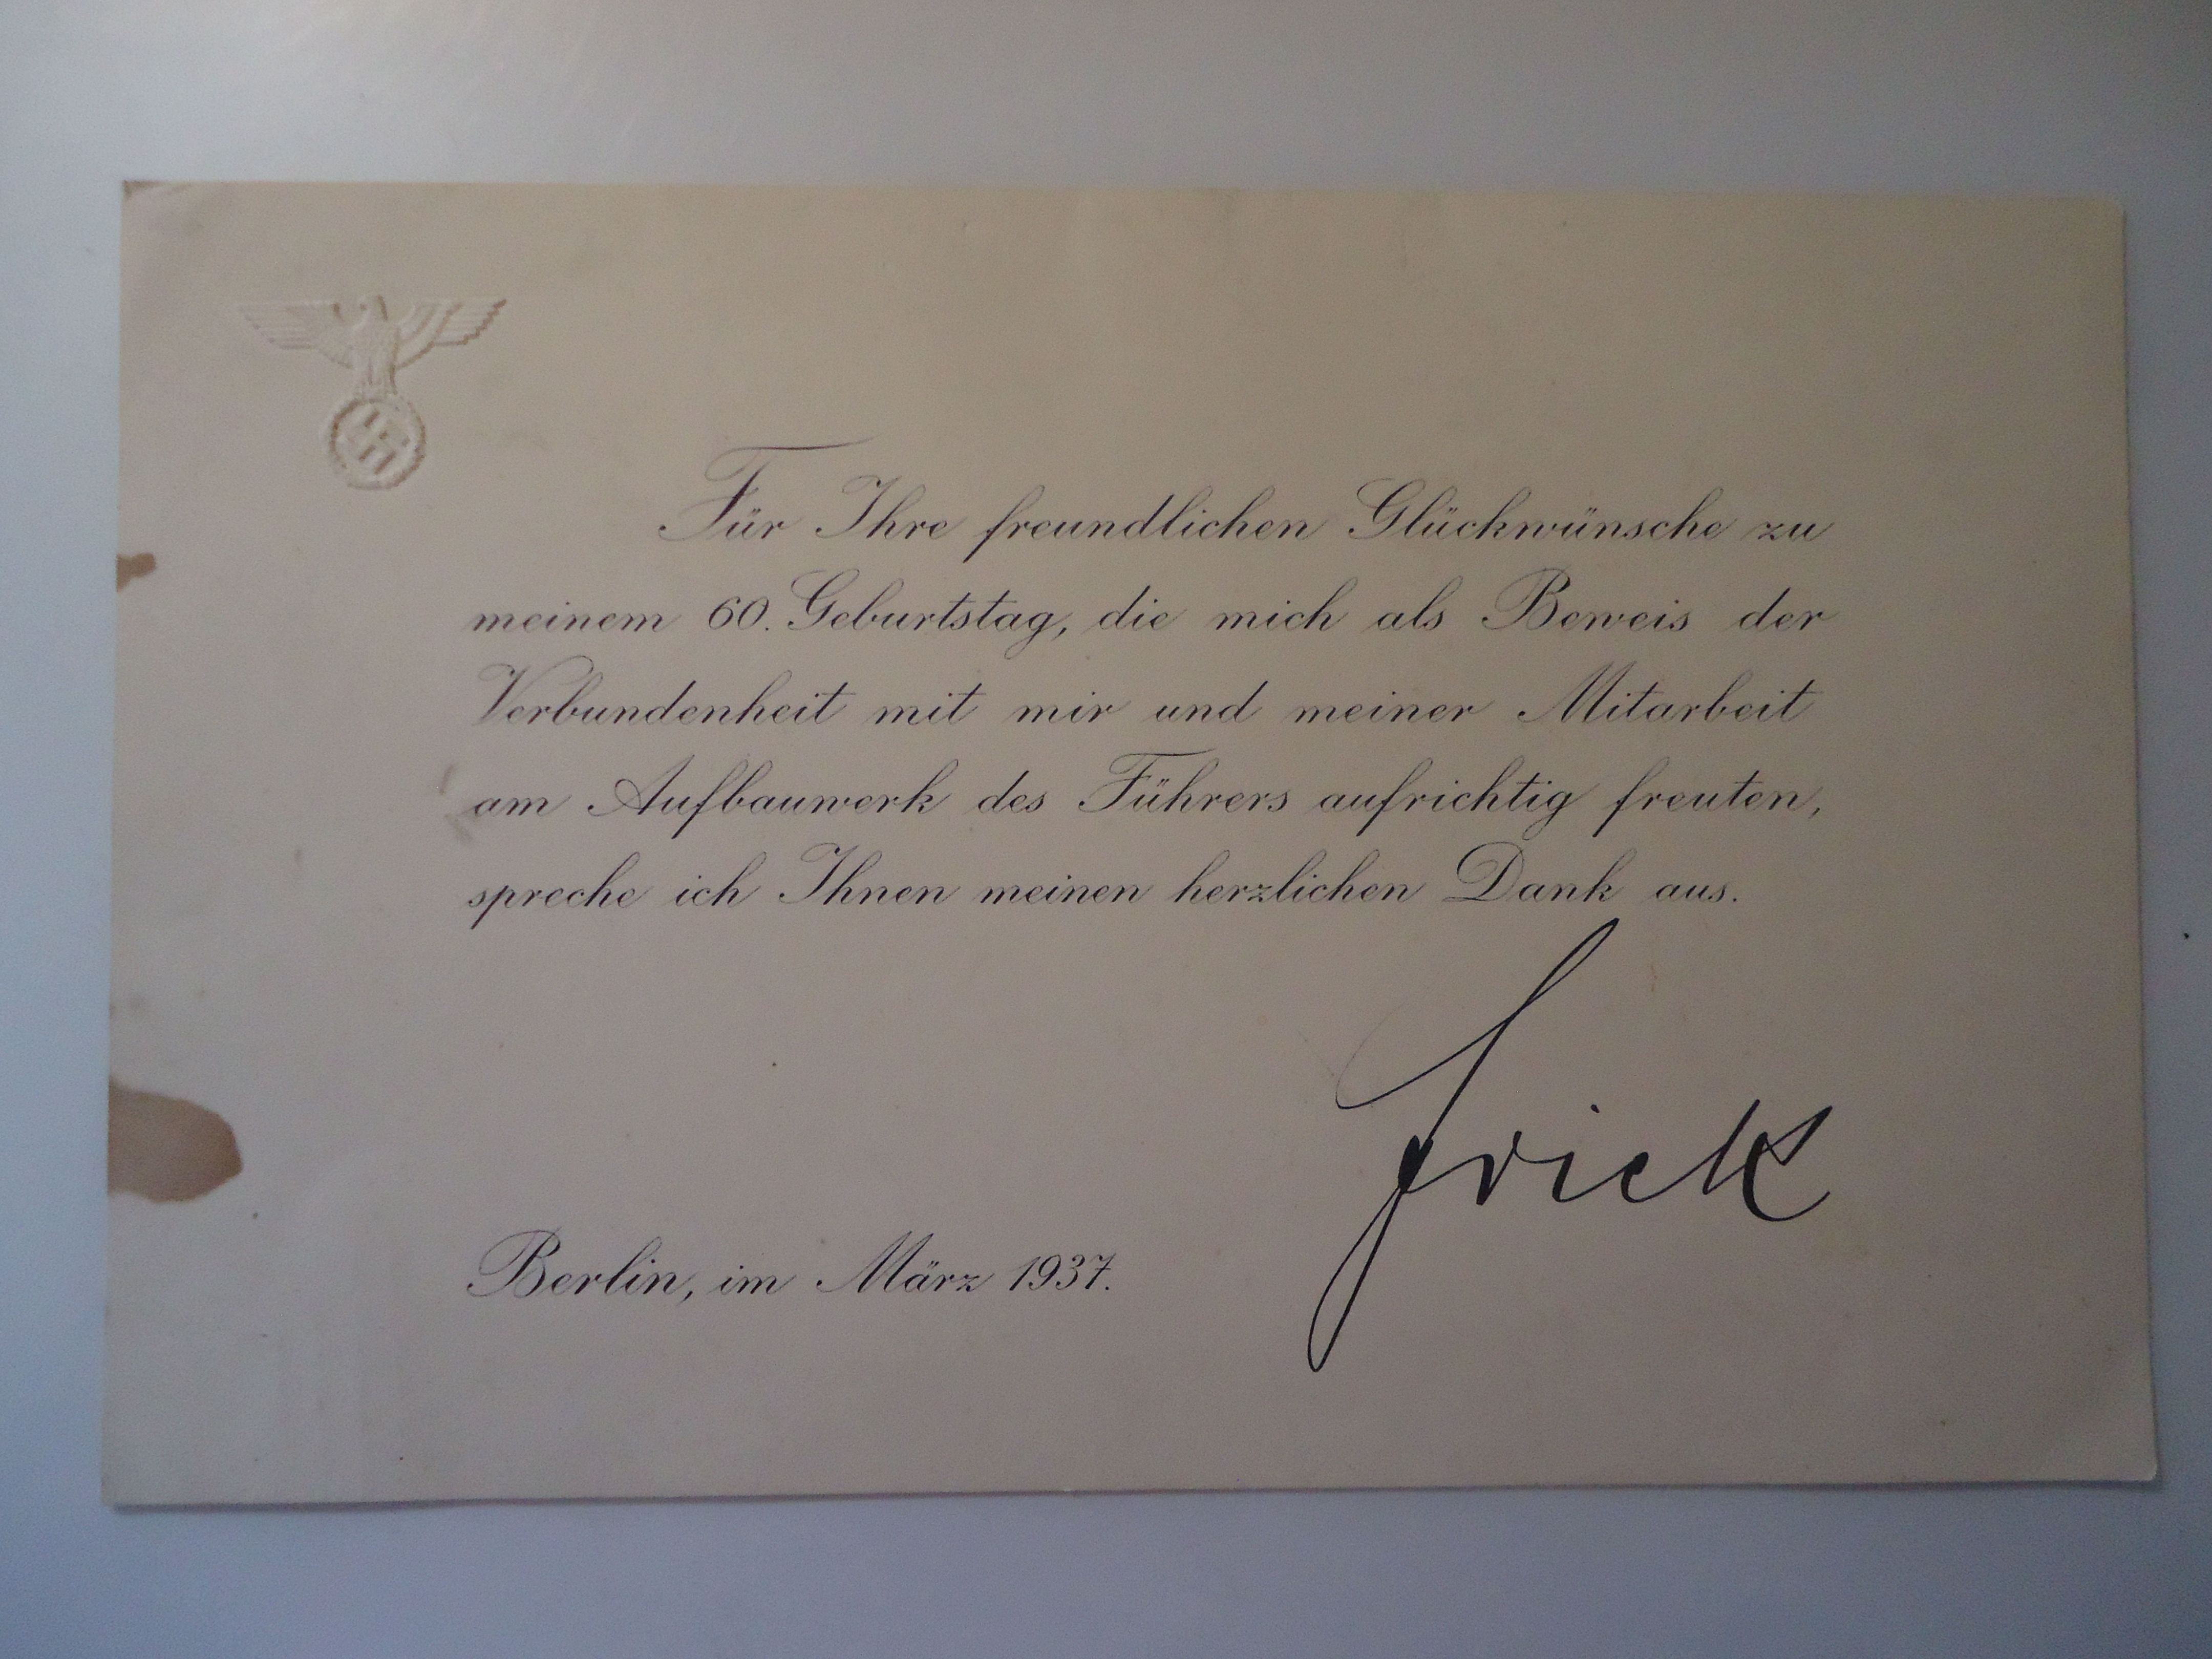 Für Ihre freundlichen Glückwünsche zu
meinem 60. Geburtstag, die mich als Beweis der
Verbundenheit mit mir und meiner Mitarbeit
am Aufbauwerk des Führers aufrichtig freuten,
spreche ich Ihnen meinen herzlichen Dank aus.
Frick
Berlin, im März 1937.